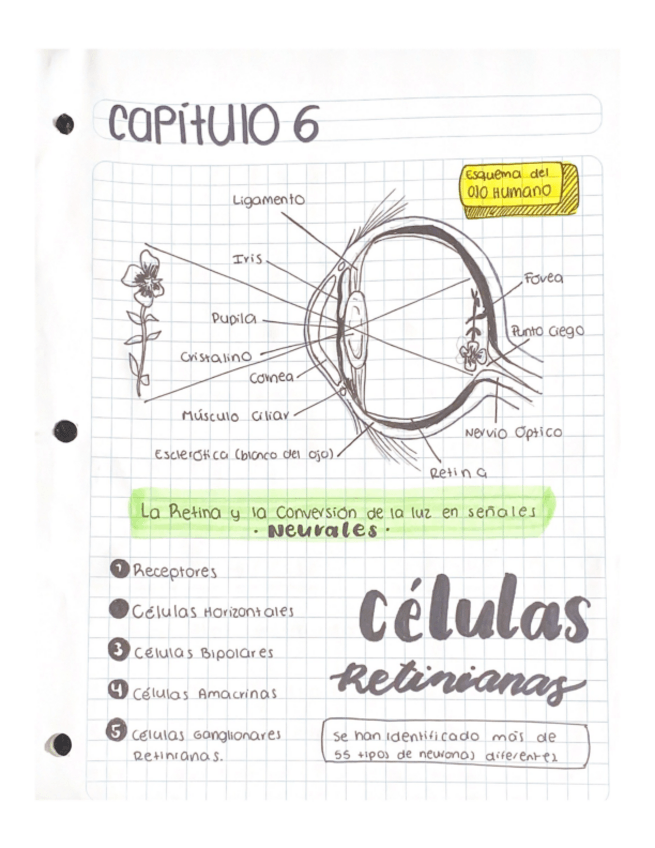 Capítulo 6
Esquema del
Ojo Humano
Ligamento
Iris
Pupila
Cristalino
Cornea
Músculo Ciliar
Esclerótica (blanco del ojo)
Fovea
Punto Ciego
Nervio Óptico
Retina
La Retina y la Conversión de la luz en señales
· Neurales ·
1 Receptores
Células Horizontales
3 Células Bipolares
4 Células Amacrinas
5 Células Ganglionares
Retinianas.
Células
Retinianas
Se han identificado más de
55 tipos de neuronas diferentes